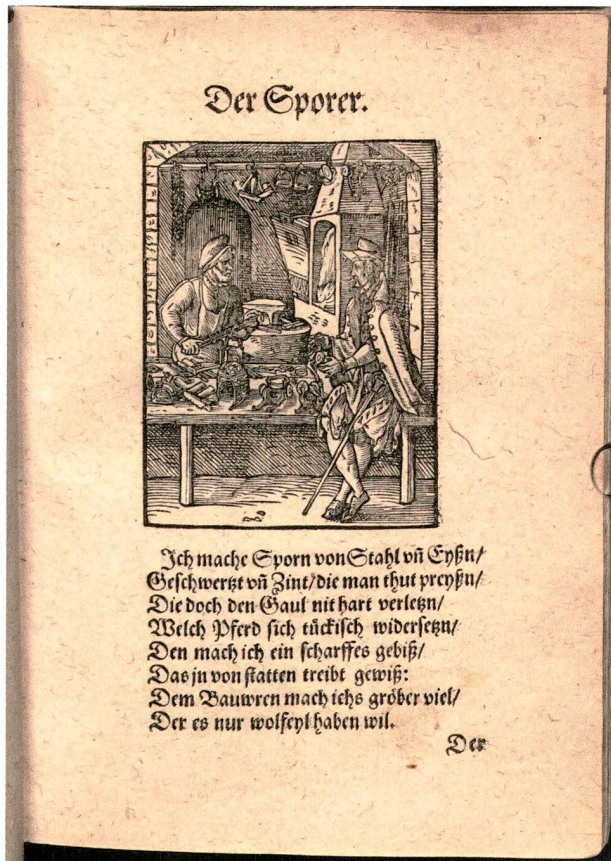 Der Sporer.
Ich mache Sporn von Stahl vñ Eyßn/
Geschwertzt vñ Zint/die man thut preyßn/
Die doch den Gaul nit hart verletzn/
Welch Pferd sich tückisch widersetzn/
Den mach ich ein scharffes gebiß/
Das jn von statten treibt gewiß:
Dem Bauwren mach ichs gröber viel/
Der es nur wolfeyl haben wil.
Der